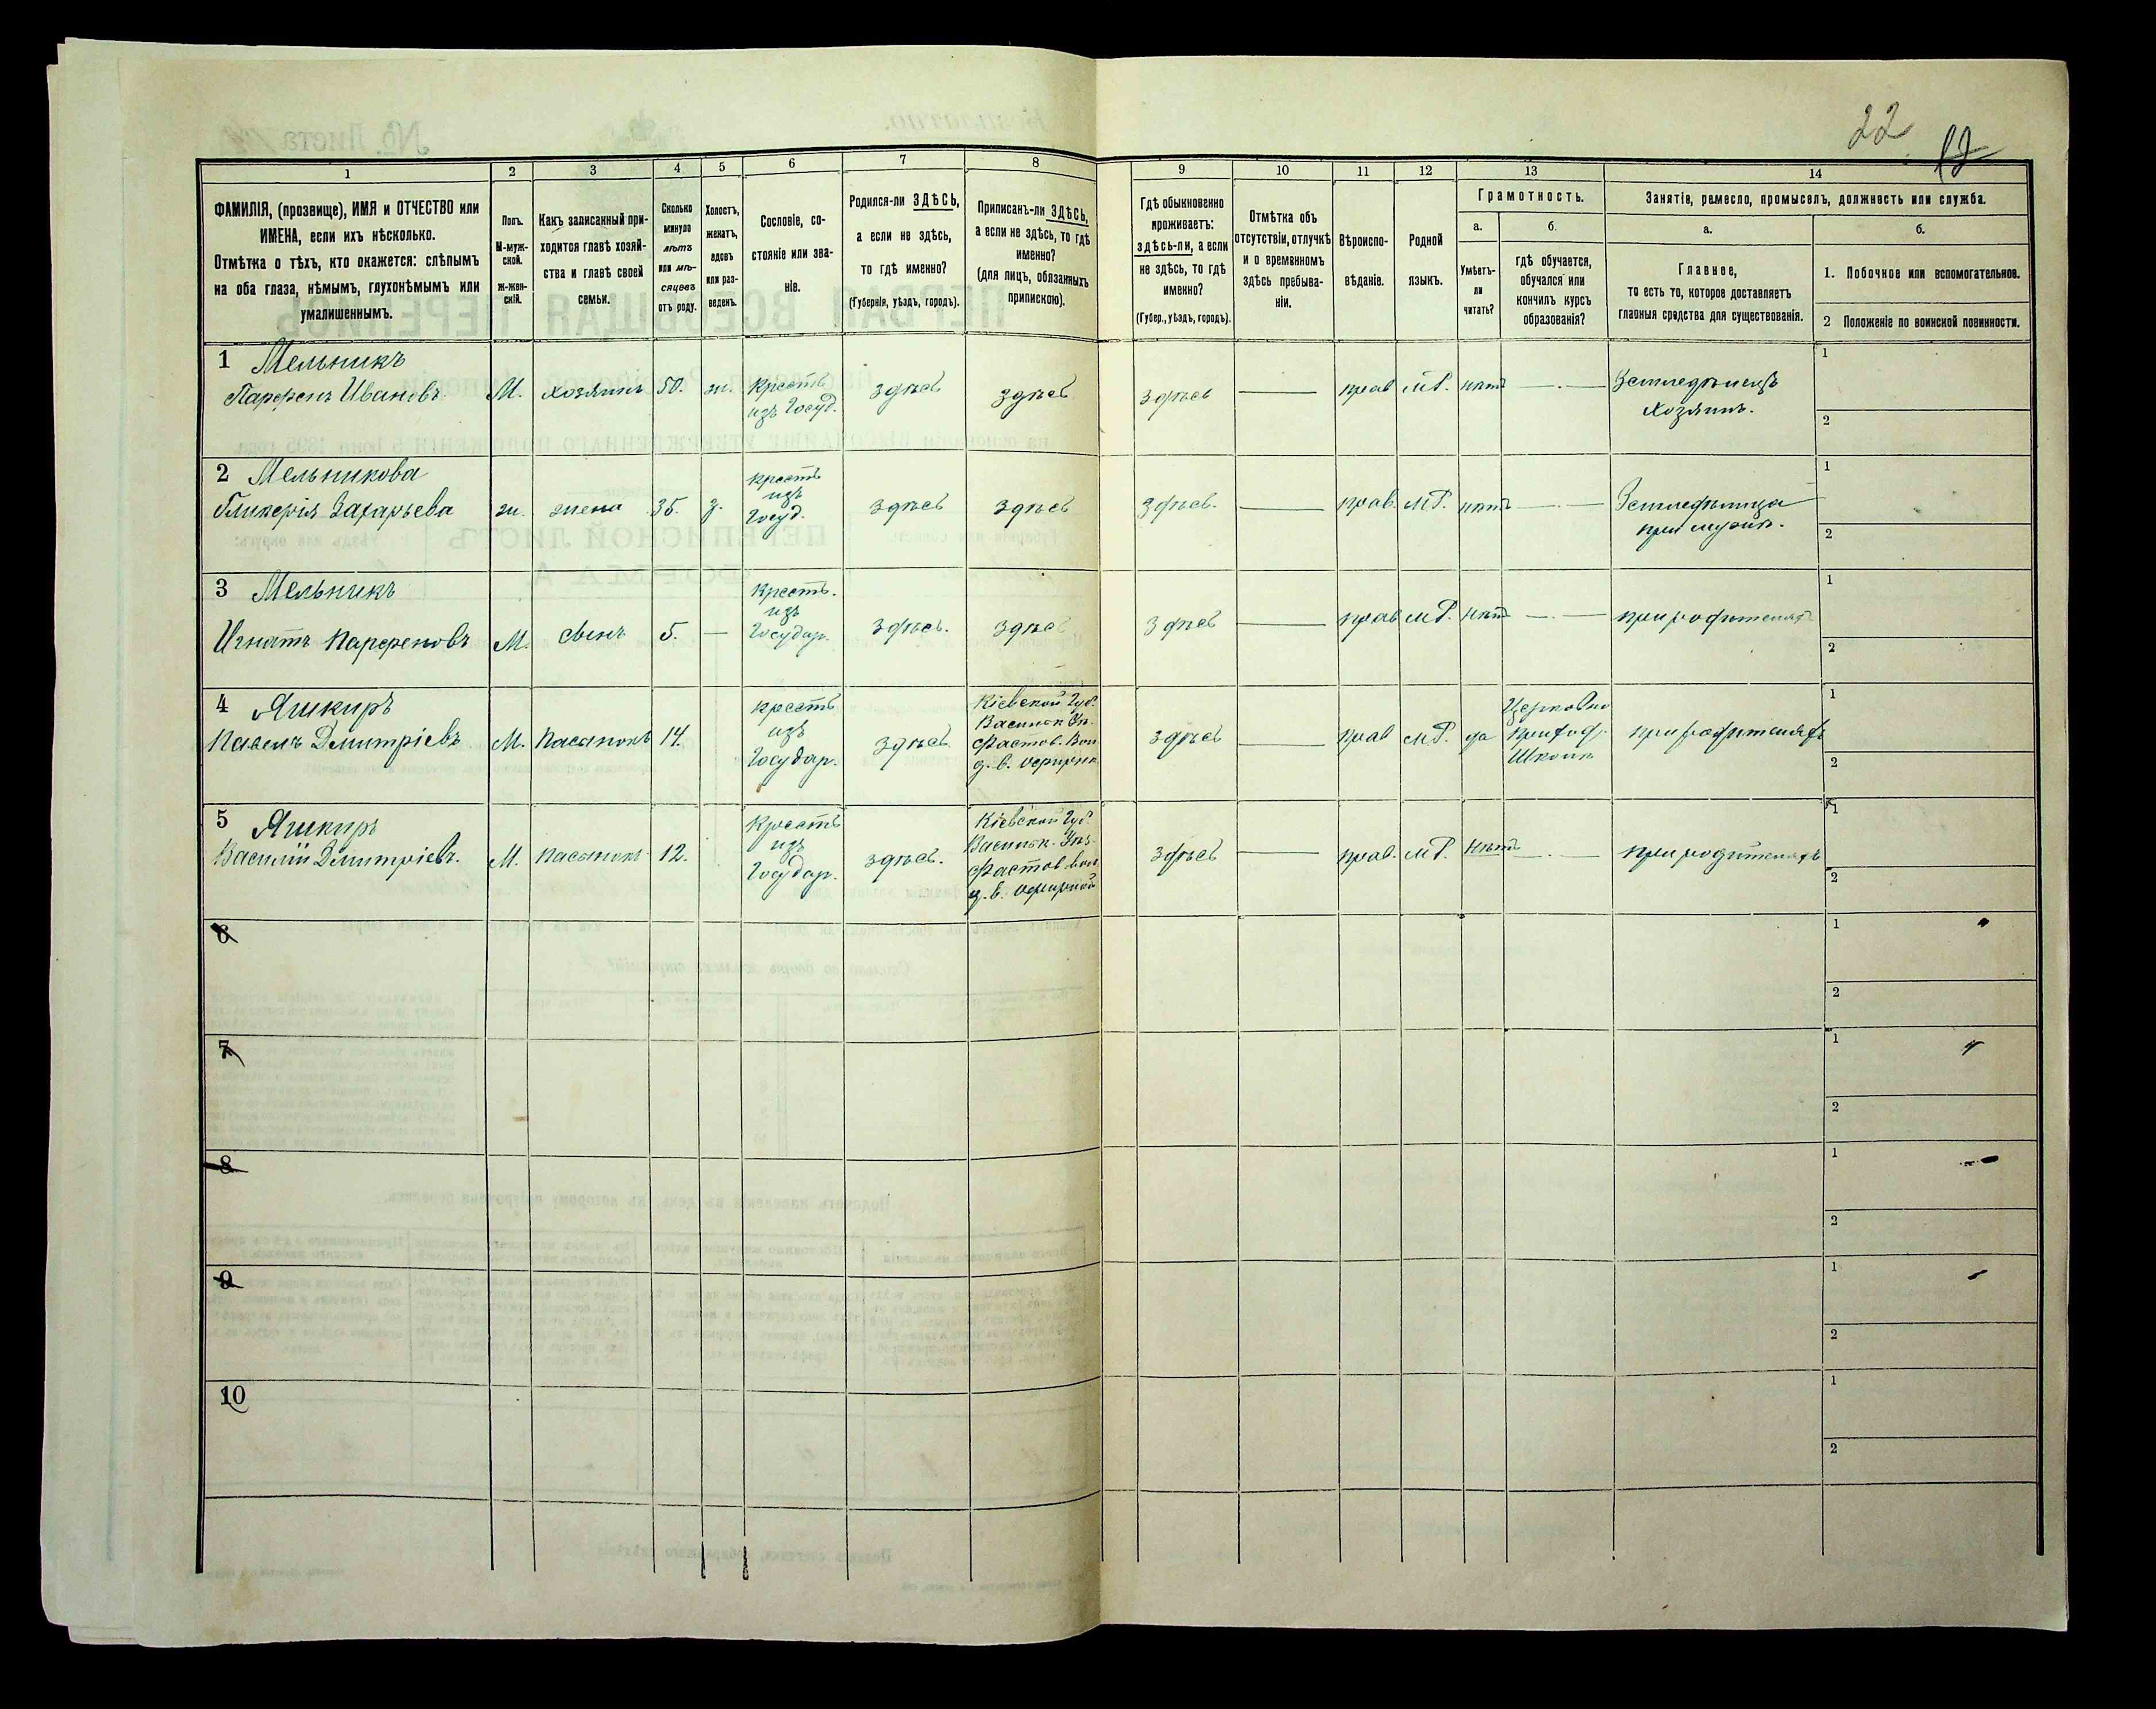 22
12
1
2
3
4
5
6
7
8
9
10
11
12
13
14
ФАМИЛІЯ, (прозвище), ИМЯ и ОТЧЕСТВО или
ИМЕНА, если ихъ нѣсколько.
Отмѣтка о тѣхъ, кто окажется: слѣпымъ
на оба глаза, нѣмымъ, глухонѣмымъ или
умалишеннымъ.
Полъ.
М-муж-
ской.
ж-жен-
скій.
Какъ записанный при-
ходится главѣ хозяй-
ства и главѣ своей
семьи.
Сколько
минуло
лѣтъ
или мѣ-
сяцевъ
отъ роду.
Холостъ,
женатъ,
вдовъ
или раз-
веденъ.
Сословіе, со-
стояніе или зва-
ніе.
Родился-ли ЗДѢСЬ,
а если не здѣсь,
то гдѣ именно?
(Губернія, уѣздъ, городъ).
Приписанъ-ли ЗДѢСЬ,
а если не здѣсь, то гдѣ
именно?
(для лицъ, обязанныхъ
припискою).
Гдѣ обыкновенно
проживаетъ:
здѣсь-ли, а если
не здѣсь, то гдѣ
именно?
(Губер., уѣздъ, городъ).
Отмѣтка объ
отсутствіи, отлучкѣ
и о временномъ
здѣсь пребыва-
ніи.
Вѣроиспо-
вѣданіе.
Родной
языкъ.
Грамотность.
а.
Умѣетъ-
ли
читать?
б.
гдѣ обучается,
обучался или
кончилъ курсъ
образованія?
Занятія, ремесло, промыселъ, должность или служба.
а.
Главное,
то есть то, которое доставляетъ
главныя средства для существованія.
б.
1. Побочное или вспомогательное.
2 Положеніе по воинской повинности.
1 Мельникъ
Парфенъ Ивановъ М. хозяинъ 50. ж. Крестъ
изъ Госуд. здѣсь здѣсь здѣсь — прав М.Р. нѣтъ — Земледѣлецъ
Хозяинъ.
1
2
2 Мельникова
Гликерія Захарьева ж. жена 35. з. крестъ
изъ
Госуд. здѣсь здѣсь здѣсь. — прав. М.Р. нѣтъ — Земледѣлица
при мужѣ.
1
2
3 Мельникъ
Игнатъ Парфеновъ М. сынъ 5. — Крестъ.
изъ
Государ. здѣсь. здѣсь здѣсь — прав М.Р. нѣтъ — при родителяхъ
1
2
4 Яшкиръ
Павелъ Дмитріевъ М. Пасынокъ 14. крестъ
изъ
Государ. здѣсь Кіевской Губ.
Васильк Уѣ.
Фастов. Вол.
д. в. здѣсь — прав М.Р. да Церковно
приход.
Школѣ при родителяхъ
1
2
5 Яшкиръ
Василій Дмитріевъ. М. пасынокъ 12. Крестъ
изъ
Государ. здѣсь. Кіевской Губ.
Васильк. Уѣз.
Фастов. вол.
д. в. здѣсь — прав. М.Р. Нѣтъ — при родителяхъ
1
2
6
1
2
7
1
2
8
1
2
9
1
2
10
1
2